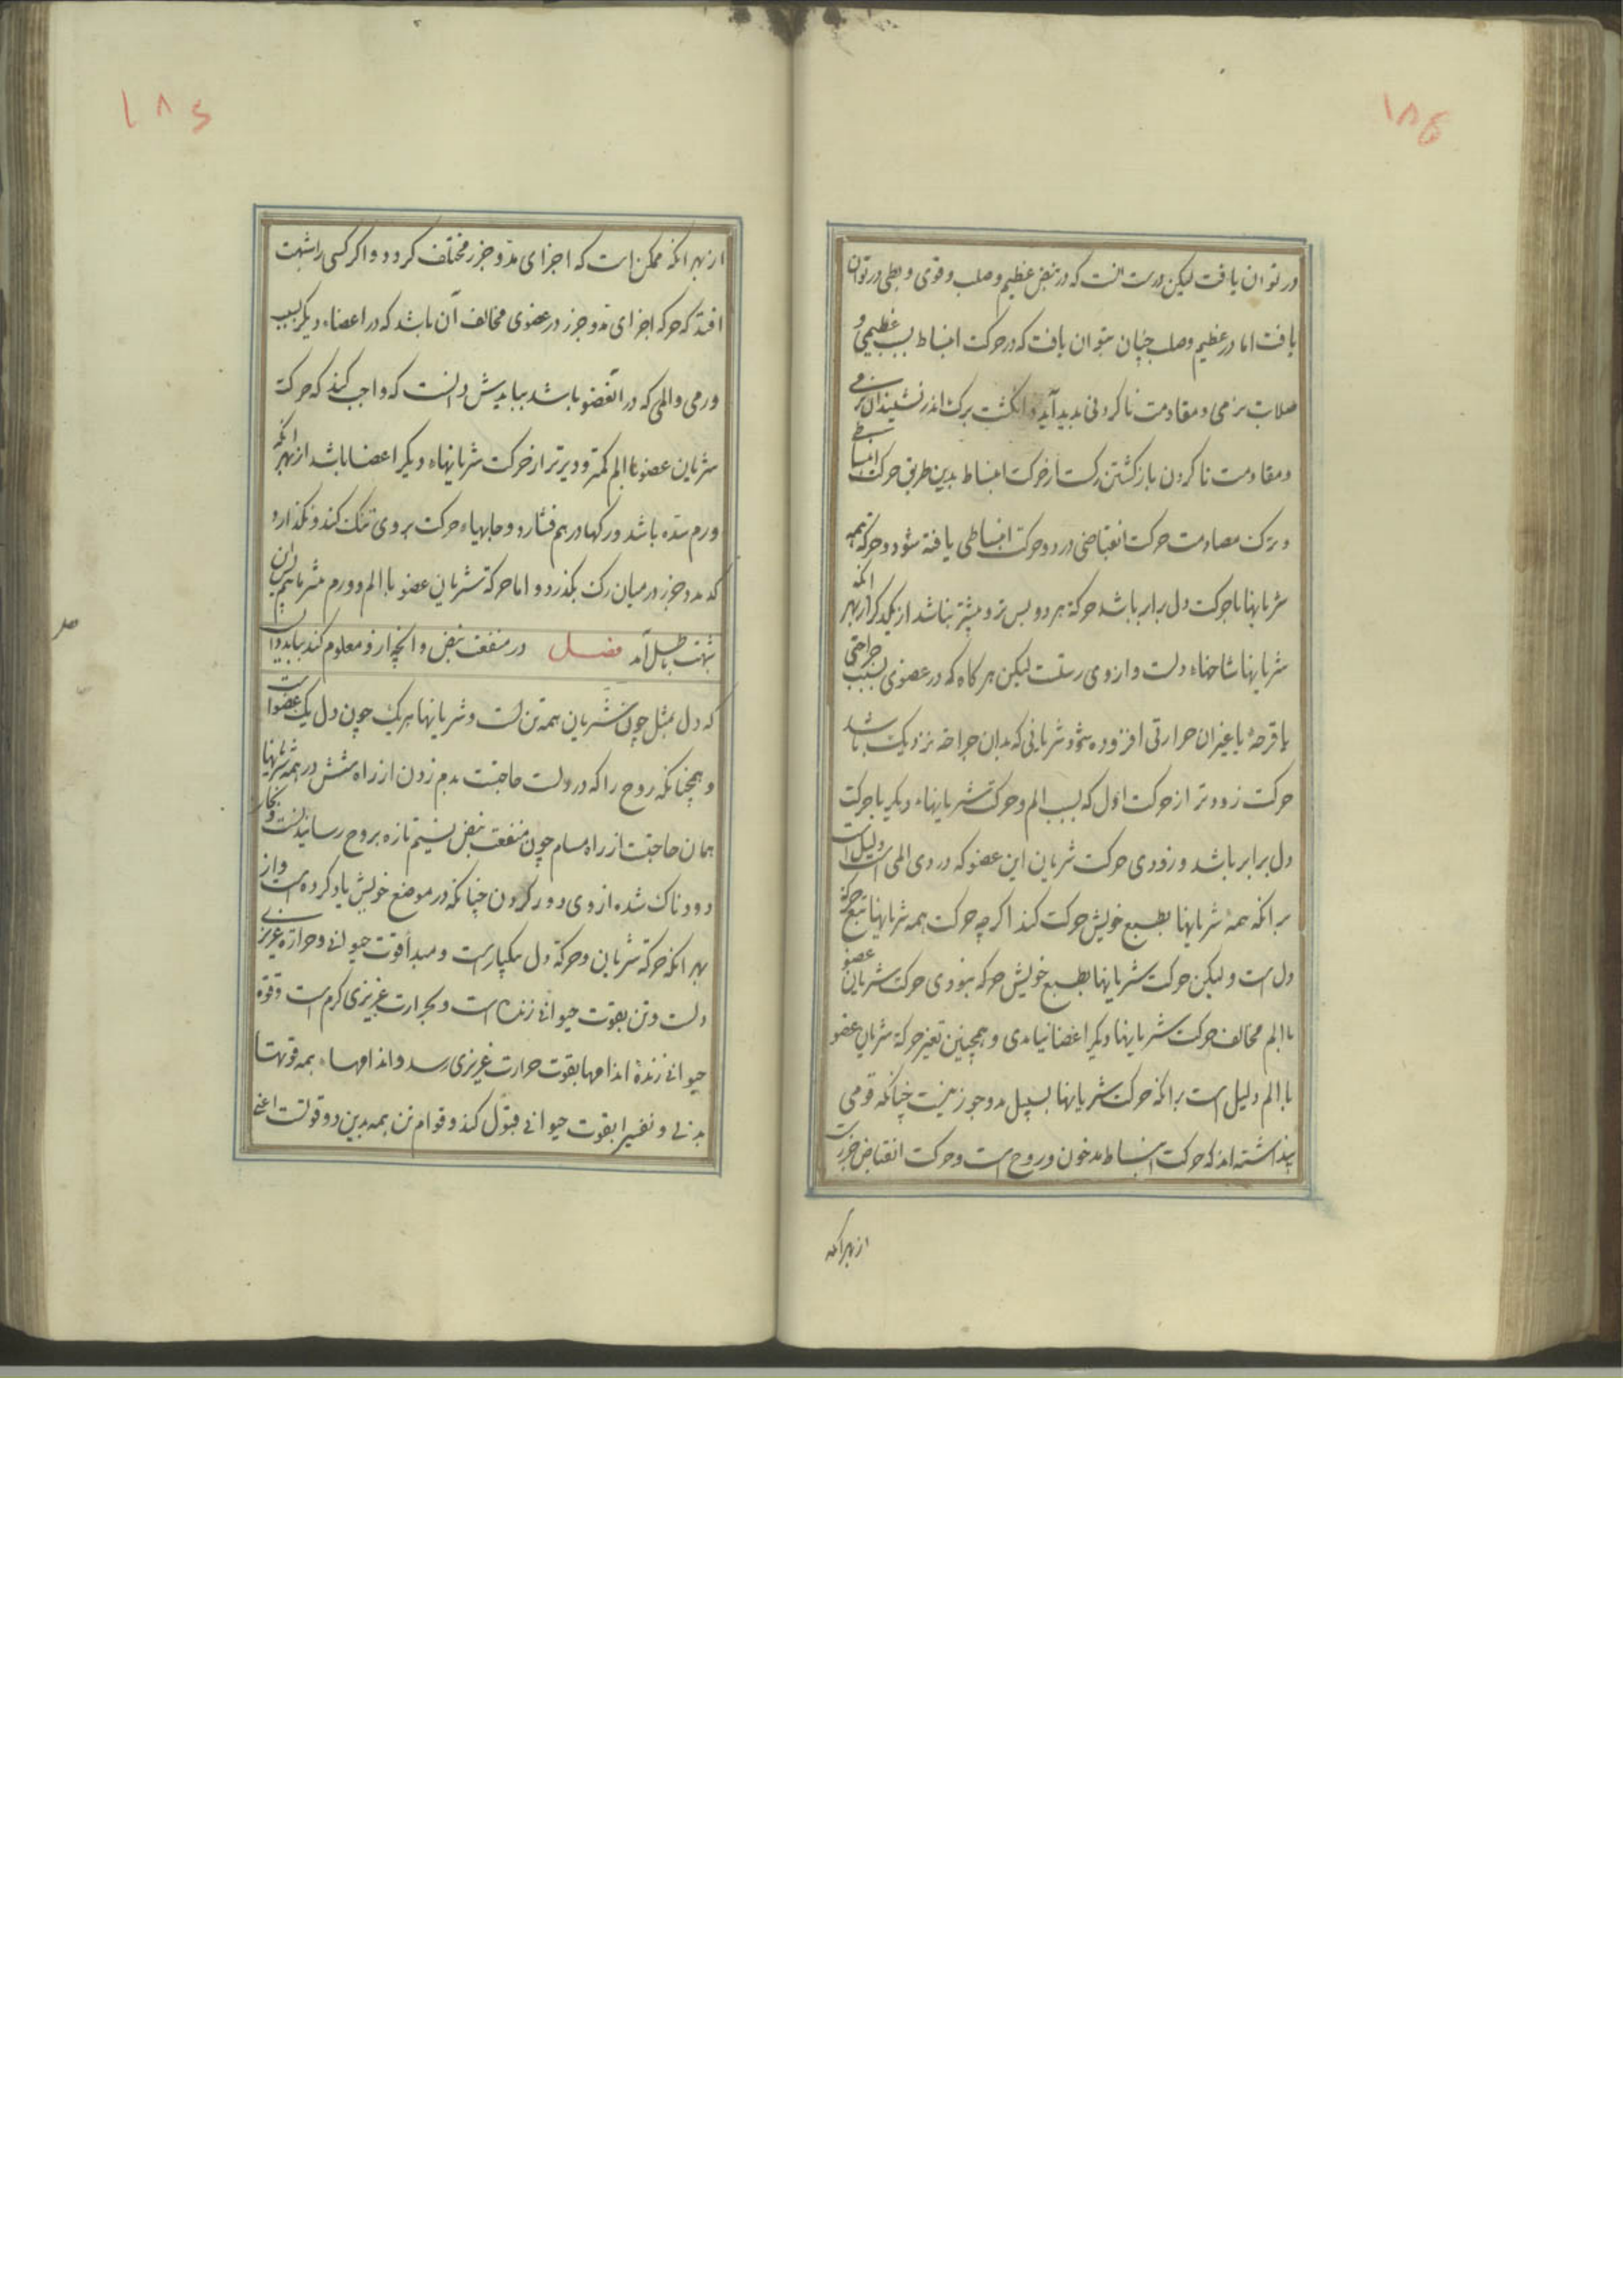 ۱۸۴
در توان یافت لیکن درست انست که در نبض عظیم و صلب و قوی و بطی در توان
یافت اما در عظیم و صلب چنان بتوان یافت که در حرکت انبساط بسبب عظیمی و
صلابت نرمی و مقاومت ناکردنی بدید آید و انکشت برک اندر نشیند ان نرمی
و مقاومت ناکردن بازکشتن رکست از حرکت انبساط بدین طریق حرکت انبساطی
و ترک مصادمت حرکت انقباضی در دو حرکت انبساطی یافته شود و حرکة همه
شریانها با حرکت دل برابر باشد حرکة هر دو بس تر و بیشتر نباشد از یکدیکر از بهر انکه
شریانها شاخهاء دلست و از وی رستست لیکن هر کاه که در عضوی بسبب جراحتی
یا قرحۀ یا غیر ان حرارتی افزوده شود شریانی که بدان جراحة نزدیک باشد
حرکت زودتر از حرکت اول که بسبب الم و حرکت شریانهاء دیکر با حرکت
دل برابر باشد و زودی حرکت شریان این عضو که در وی المی است دلیل است
برانکه همۀ شریانها بطبع خویش حرکت کند اکر چه حرکت همه شریانها تبع حرکة
دل است و لیکن حرکت شریانها بطبع خویش حرکه نبودی حرکت شریان عضو
با الم مخالف حرکت شریانها دیکر اعضا نیامدی و همچنین تغیر حرکة شریان عضو
با الم دلیل است برانکه حرکت شریانها بسبیل مد و جزر نیست چنانکه قومی
بنداشته اند که حرکت انبساط مد خون و روح است و حرکت انقباض جزرست
از بهر انکه
۱۸۵
از بهر انکه ممکن است که اجزای مد و جزر مختلف کردد و اکر کسی را شبهت
افتد که حرکه اجزای مد و جزر در عضوی مخالف آن باشد که در اعضاء دیکر بسبب
ورمی و المی که در ان عضو باشد بباید دانست که واجب کند که حرکة
شریان عضو با الم کمتر و دیرتر از حرکت شریانهاء دیکر اعضا باشد از بهر انکه
ورم سده باشد و رکها در هم فشارد و جایهاء حرکت بر وی تنک کند و نکذارد
که مد و جزر در میان رک بکذرد و اما حرکة شریان عضو با الم و ورم
شبهت باطل آمد فصل در منفعت نبض و انچه از و معلوم کند بباید دانست
که دل بمثل چون شریان همه تن است و شریانها هر یک چون دل یک عضو است
و همچنانکه روح را که در دلست حاجتست بدم زدن از راه شش در همه شریانها
همان حاجتست از راه مسام چون منفعت نبض نسیم تازه بروح رسانیدنست و بخار
دودناک شده از وی دور کردن چنانکه در موضع خویش یاد کرده است و از
بهر انکه حرکة شریان و حرکة دل یکبار است و مبدأ قوت حیوانی و حرارة غریزی
دلست و تن بقوت حیوانی زنده است و بحرارت غریزی کرم است و قوة
حیوانی زندۀ اندامها بقوت حرارت غریزی رسد و اندامهاء همه قوتها
بدنی و نفسی را بقوت حیوانی قبول کند و قوام تن همه بدین دو قوتست اعنی